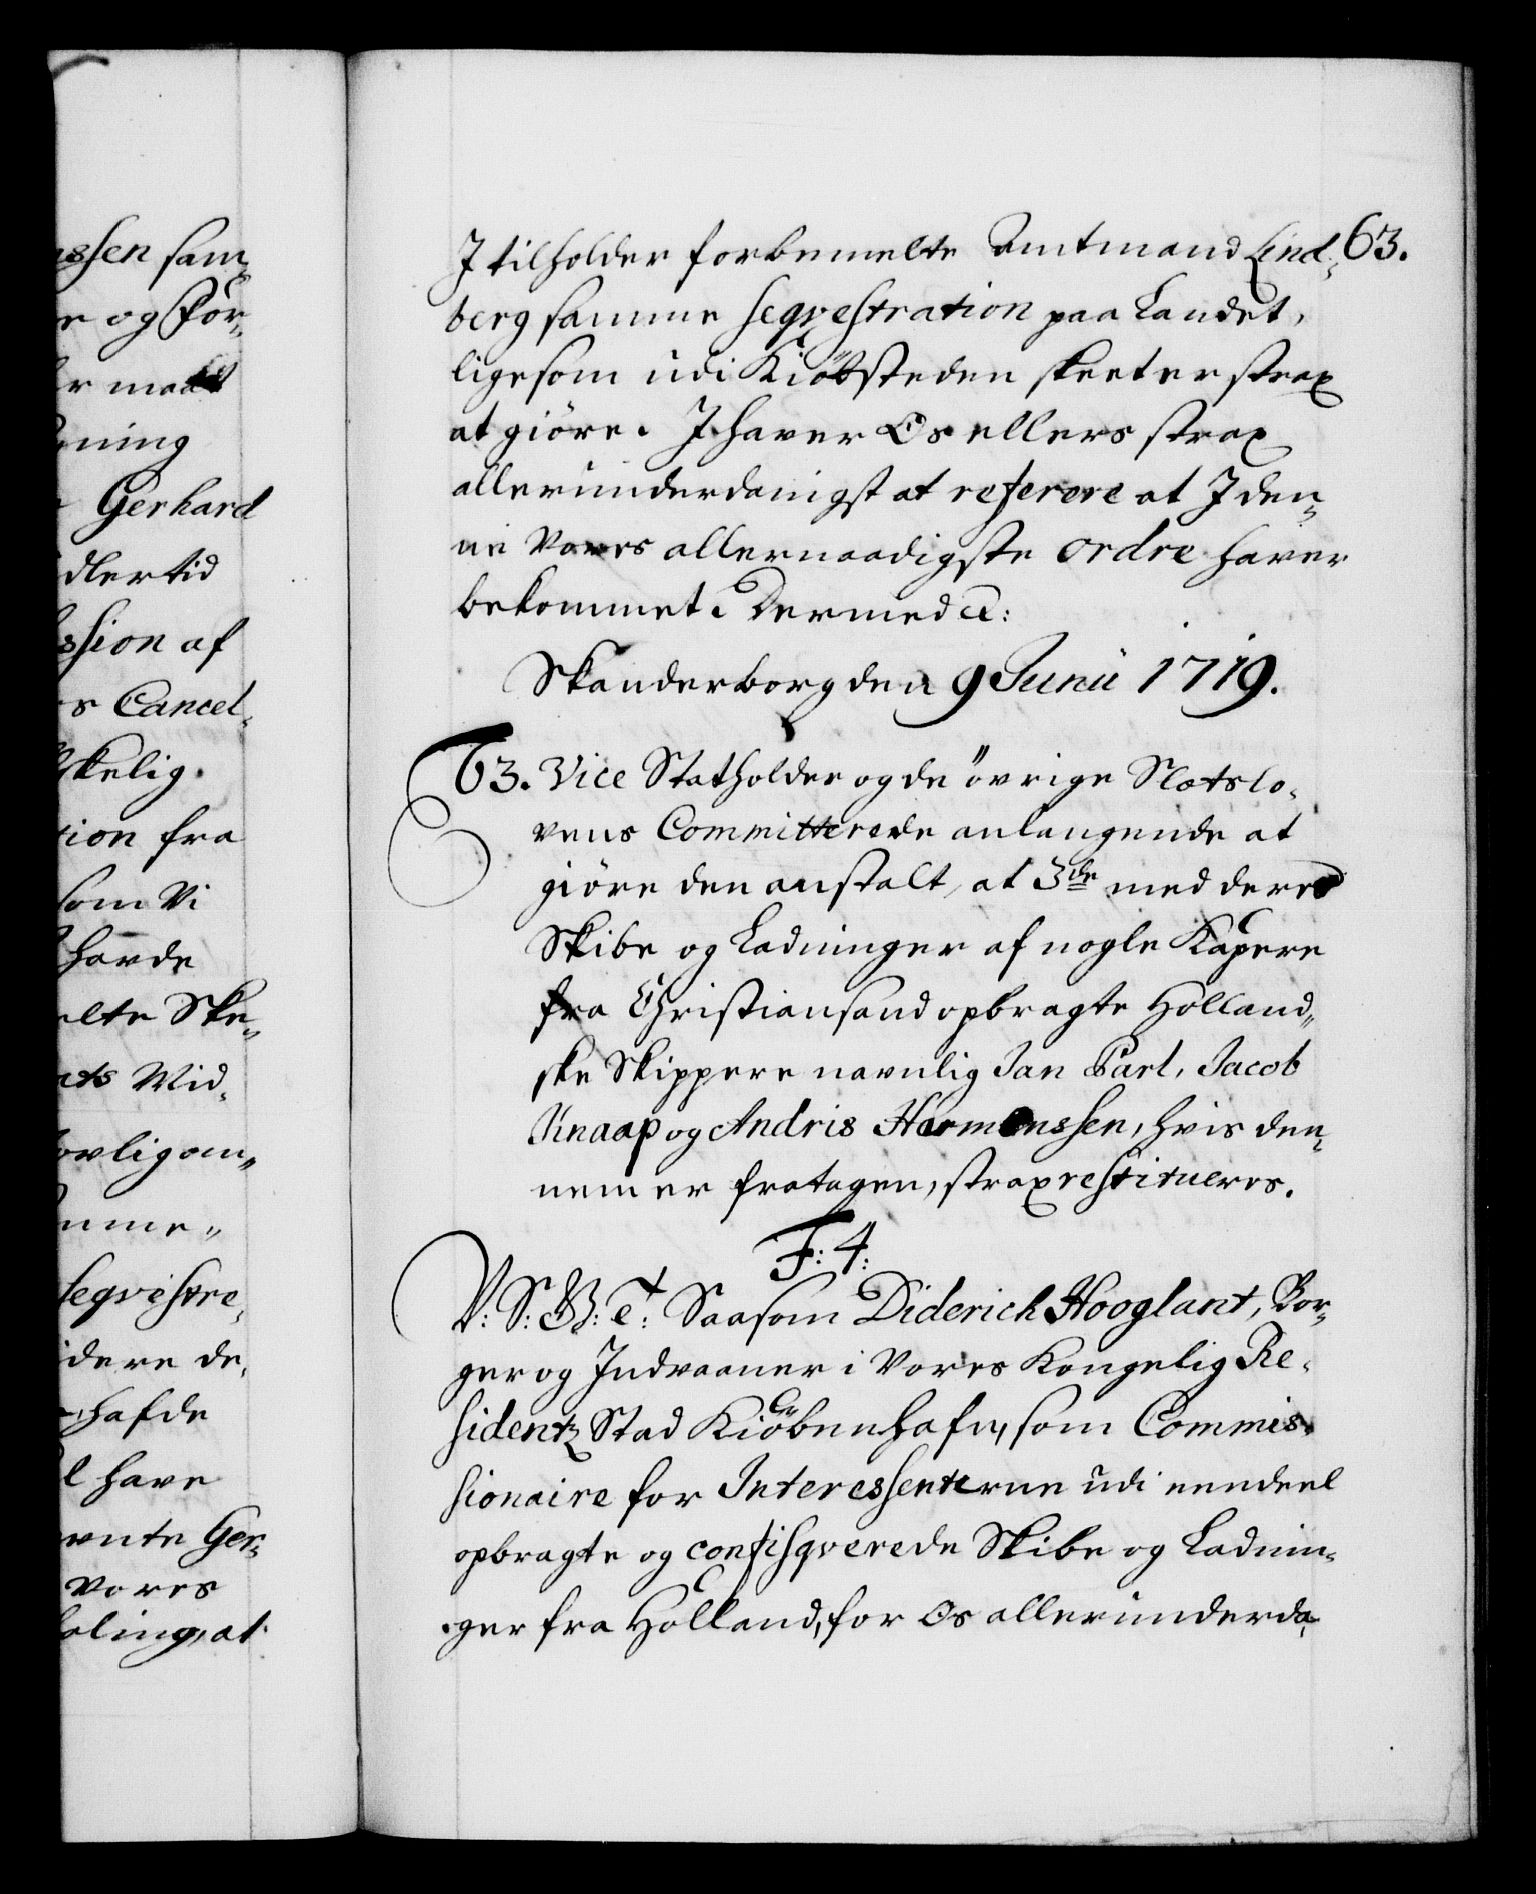 ssen sam„
e og For„
er maatt
ning
Gerhard
dlertid
ssion af
s Cancel„
skelig
tion fra
som Vi
hafde
elte Ske„
ets Wid„
ovligom„
mme„
seqvestre„
idere de„
hafde
l have
ente Ger„
Vores
oling, at
63.
I tilholder forbemelte Amtmand Lind„
berg samme seqvestration paa Landet,
ligesom udi Kiöbsteden skeet er strax
at giöre. I haver Os ellers strax
allerunderdanigst at referere at I den„
ne Vores allernaadigste ordre haver
bekommet. Dermed &:
Skanderborg den 9 Junii 1719.
63. Vice Statholder og de övrige Slotslo„
vens Committerede anlangende at
giöre den anstalt, at 3de med deres
Skibe og Ladninger af nogle Kapere
fra Christiansand opbragte Holland„
ske Skippere navnlig Jan Parl, Jacob
Knaap og Andris Hermenssen, hvis den„
nem er fratagen, strax restitueres.
F: 4:
V: S: G: T: Saasom Diderich Hooglant, Bor„
ger og Indvaaner i Vores Kongelig Re„
sidentz Stad Kiöbenhafn, som Commis„
sionaire for Interessenterne udi eendeel
opbragte og confisqverede Skibe og Ladnin„
ger fra Holland, for Os allerunderda„